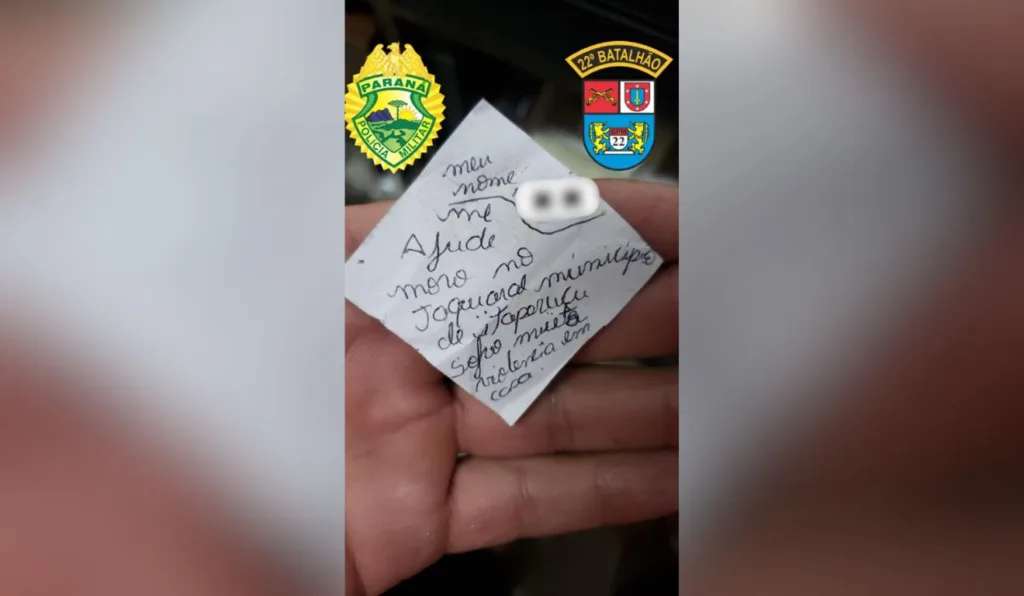 PARANÁ
POLÍCIA MILITAR
22º BATALHÃO
22
meu
nome
me
Ajude
moro no
Jaguaral município
de itaperuçu
sofro muita
violencia em
casa.